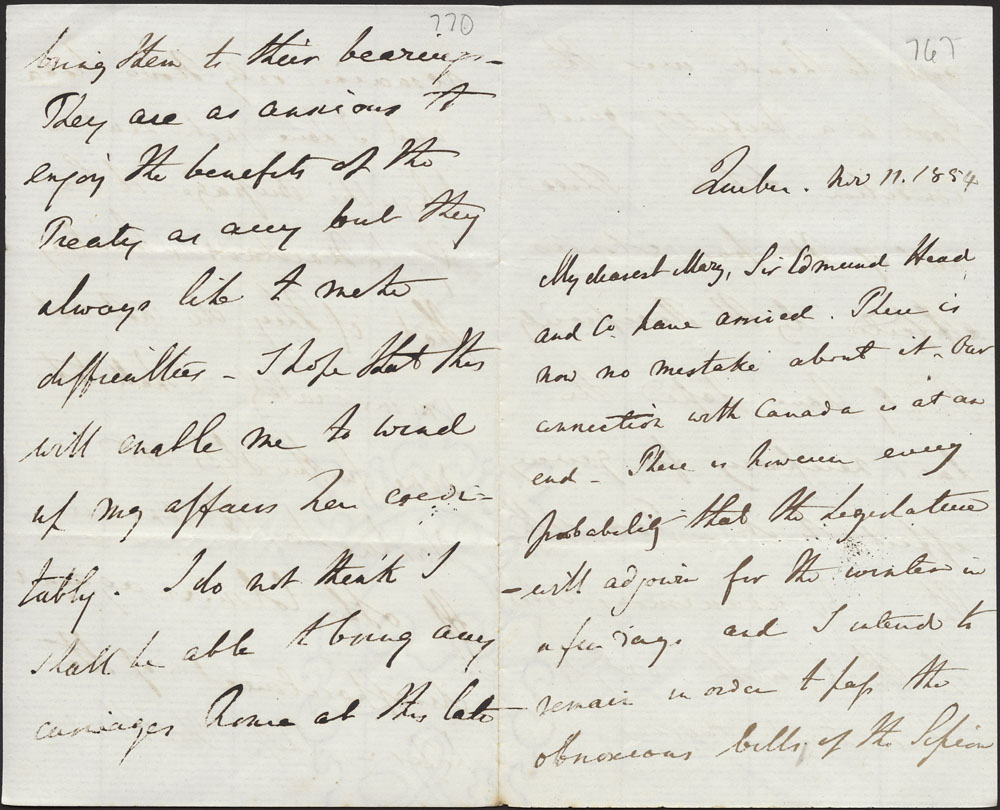 770
bring them to their bearings –
They are as anxious to
enjoy the benefits of the
Treaty as any but they
always like to make
difficulties – I hope that this
will enable me to wind
up my affairs here credi-
tably. I do not think I
shall be able to bring any
carriages home at this late
767
Quebec. Nov 11. 1854
My dearest Mary, Sir Edmund Head
and Co. have arrived. There is
now no mistake about it – Our
connection with Canada is at an
end – There is however every
probability that the Legislature
– will adjourn for the winter in
a few days and I intend to
remain in order to pass the
obnoxious bills, of the Session